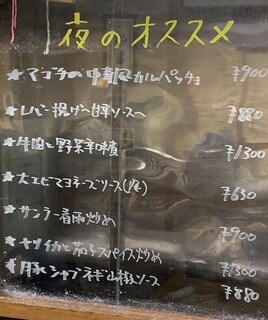 夜のオススメ
★マゴチの中華風カルパッチョ ¥900
★レバー揚げ〜甘辛ソース〜 ¥880
★牛肉と野菜辛味 ¥1300
★大エビマヨネーズソース(2尾) ¥630
★サンラー春雨炒め ¥900
★ヤリイカと茄子スパイス炒め ¥1300
★豚シャブネギ山椒ソース ¥880